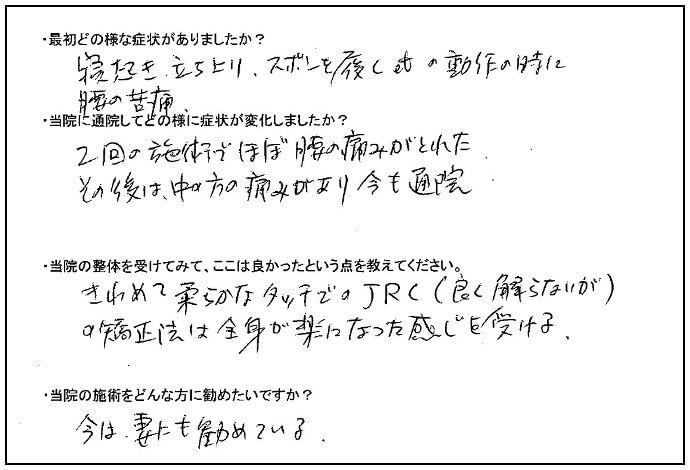 ・最初どの様な症状がありましたか？
寝起き、立ち上り、ズボンを履くetcの動作の時に
腰の苦痛。
・当院に通院してどの様に症状が変化しましたか？
2回の施術でほぼ腰の痛みがとれた。
その後は、中の方の痛みがあり今も通院
・当院の整体を受けてみて、ここは良かったという点を教えてください。
きわめて柔らかなタッチでのJRC（良く解らないが）
の矯正法は全身が楽になった感じを受ける。
・当院の施術をどんな方に勧めたいですか？
今は、妻にも勧めている。